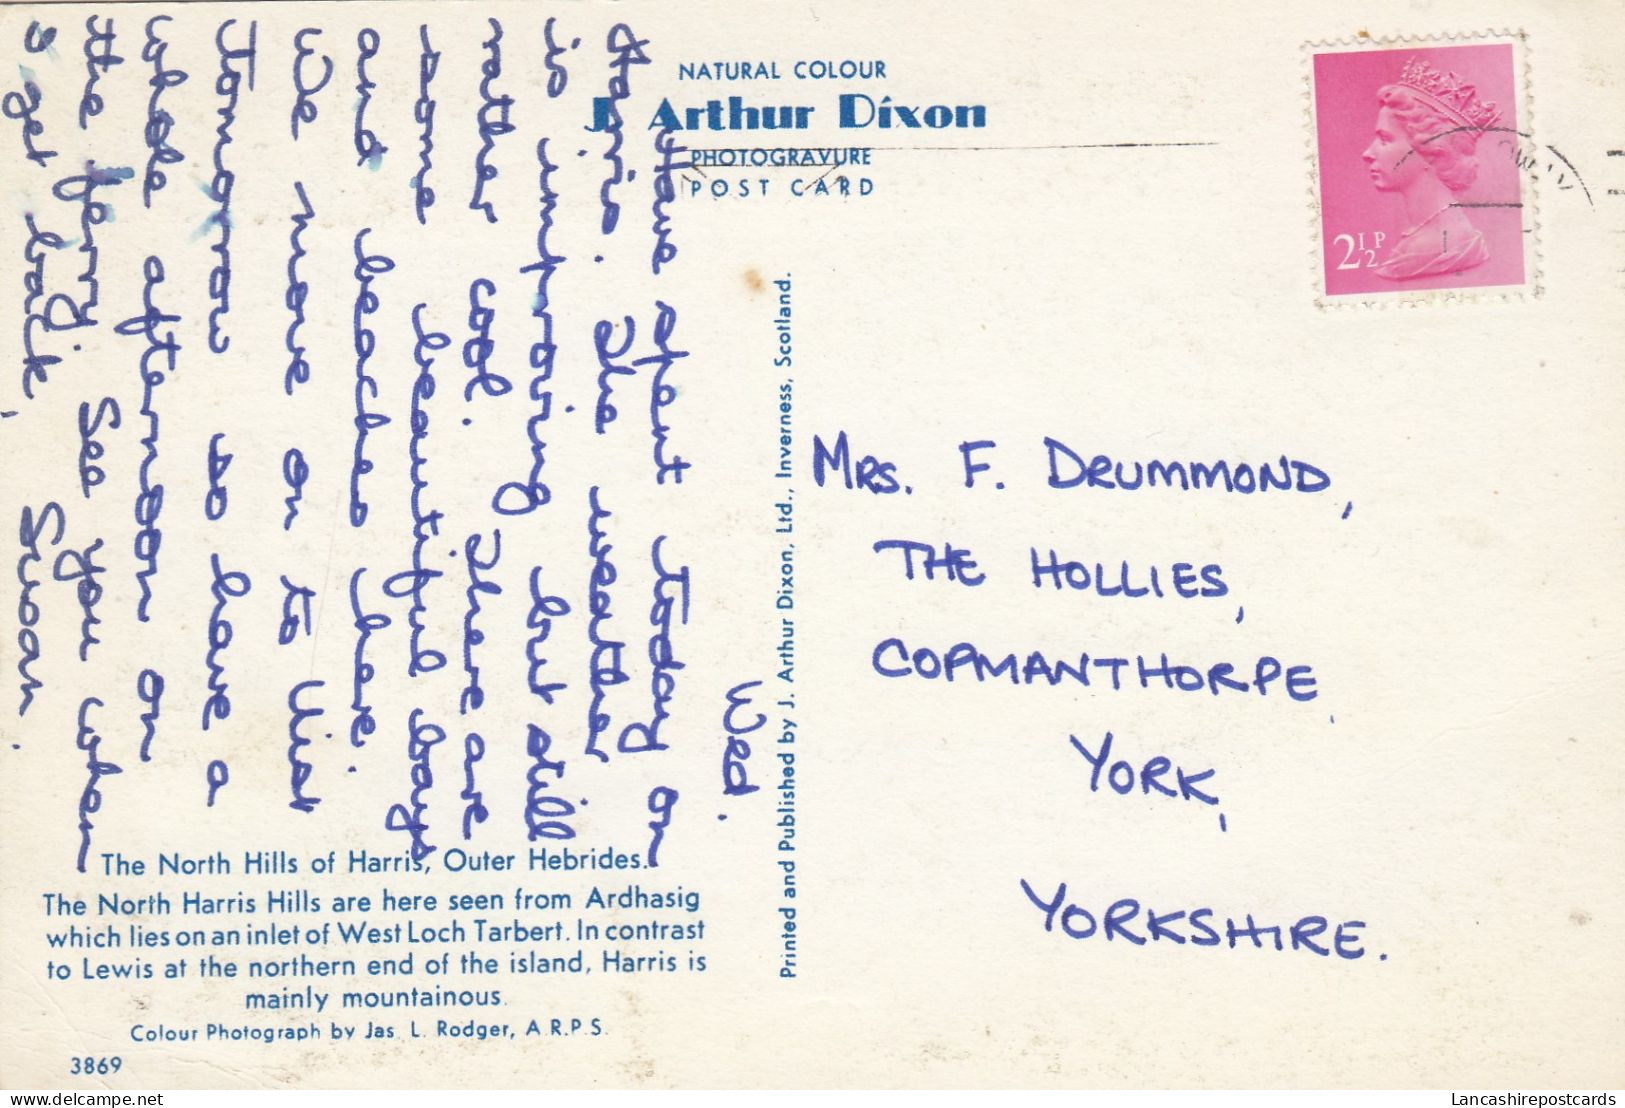 NATURAL COLOUR
J. Arthur Dixon
PHOTOGRAVURE
POST CARD
2½P
Wed.
Have spent today on
Harris. The weather
is improving but still
rather cool. There are
some beautiful bays
and beaches here.
We move on to Uist
tomorrow so have a
whole afternoon on
the ferry. See you when
I get back,
Susan.
Printed and Published by J. Arthur Dixon, Ltd., Inverness, Scotland.
MRS. F. DRUMMOND,
THE HOLLIES,
COPMANTHORPE,
YORK,
YORKSHIRE.
The North Hills of Harris, Outer Hebrides.
The North Harris Hills are here seen from Ardhasig
which lies on an inlet of West Loch Tarbert. In contrast
to Lewis at the northern end of the island, Harris is
mainly mountainous.
Colour Photograph by Jas. L. Rodger, A.R.P.S.
3869
© delcampe.net
Lancashirepostcards